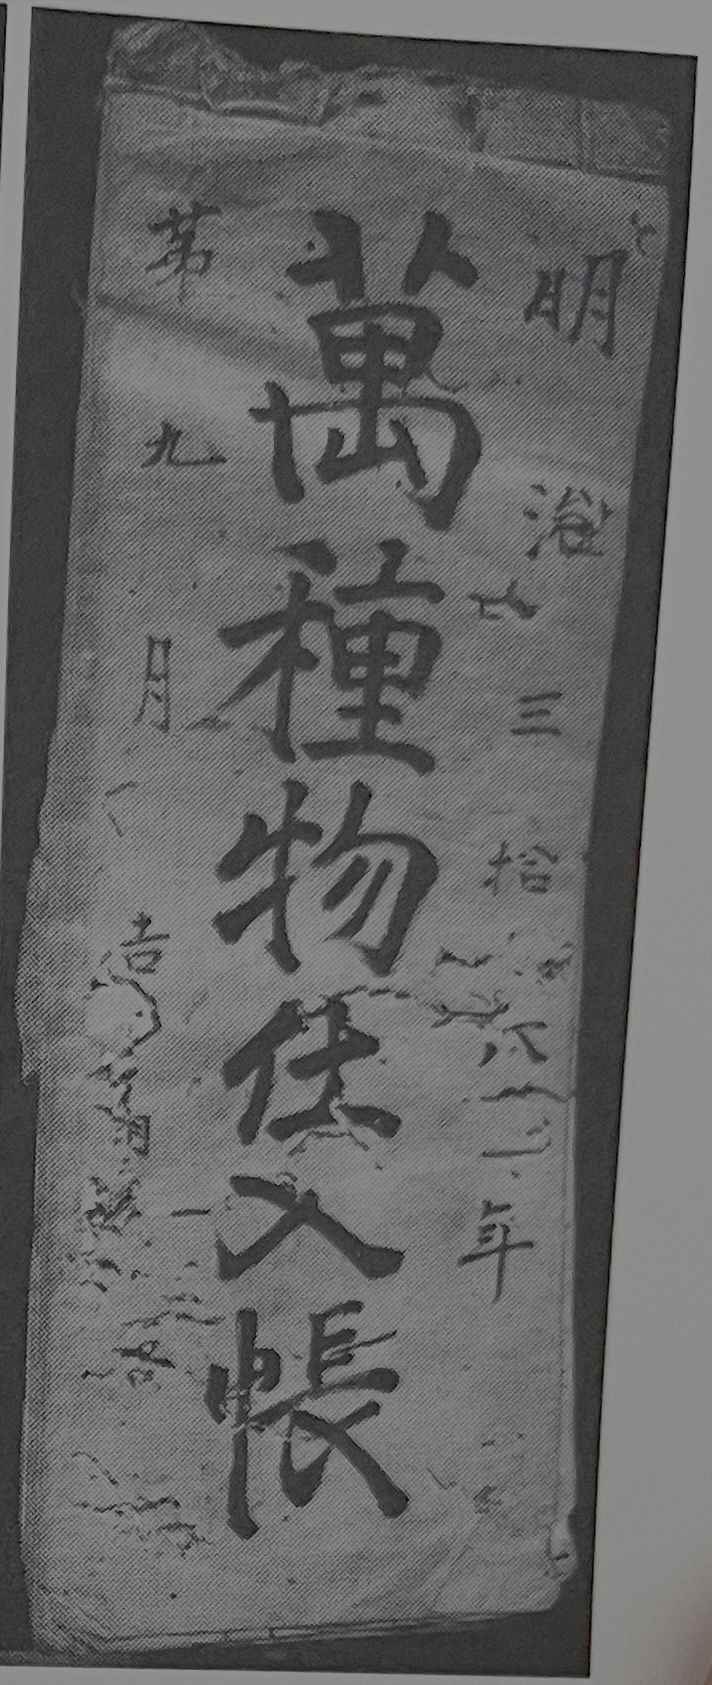 明治三拾年
萬種物仕入帳
第九月吉